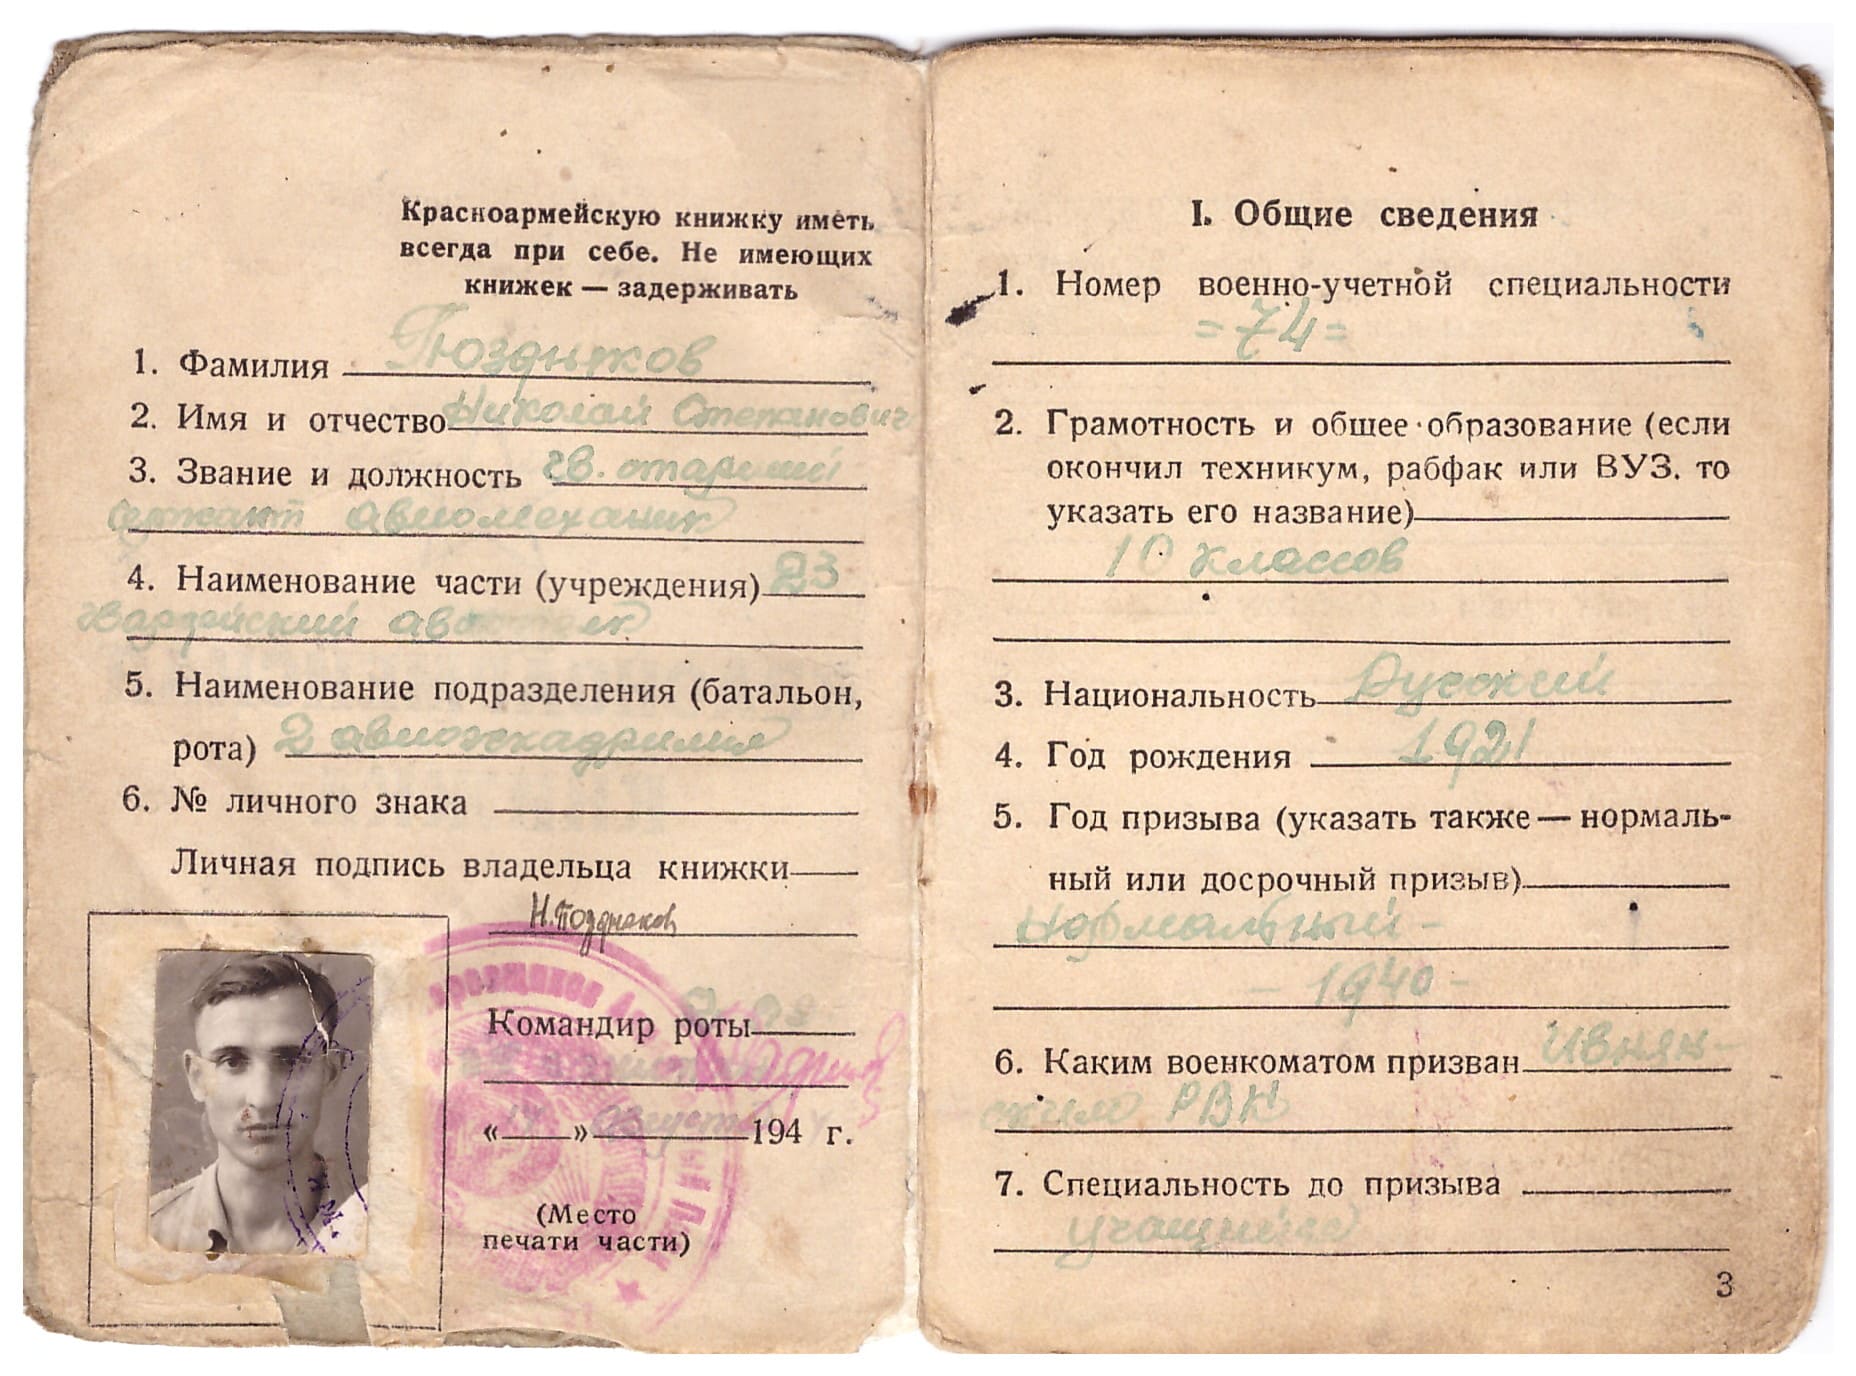 Красноармейскую книжку иметь
всегда при себе. Не имеющих
книжек — задерживать
1. Фамилия Поздняков
2. Имя и отчество Николай Степанович
3. Звание и должность гв. старший
сержант авиомеханик
4. Наименование части (учреждения) 23
Гвардейский авиополк
5. Наименование подразделения (батальон,
рота) 2 авиоэскадрилия
6. № личного знака
Личная подпись владельца книжки
Н.Поздняков
Командир роты
« 14 » августа 194 г.
(Место
печати части)
I. Общие сведения
1. Номер военно-учетной специальности
=74=
2. Грамотность и общее образование (если
окончил техникум, рабфак или ВУЗ. то
указать его название)
10 классов
3. Национальность Русский
4. Год рождения 1921
5. Год призыва (указать также — нормаль-
ный или досрочный призыв)
Нормальный -
- 1940 -
6. Каким военкоматом призван Ивнян-
ским РВК
7. Специальность до призыва
учащийся
3